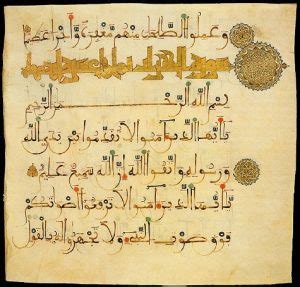 وعملوا الصلحت منهم مغفرة وأجرا عظيما
سورة الحجرات
بسم الله الرحمن الرحيم
يأيها الذين ءامنوا لا تقدموا بين يدي الله
ورسوله واتقوا الله إن الله سميع عليم
يأيها الذين ءامنوا لا ترفعوا أصواتكم
فوق صوت النبي ولا تجهروا له بالقول